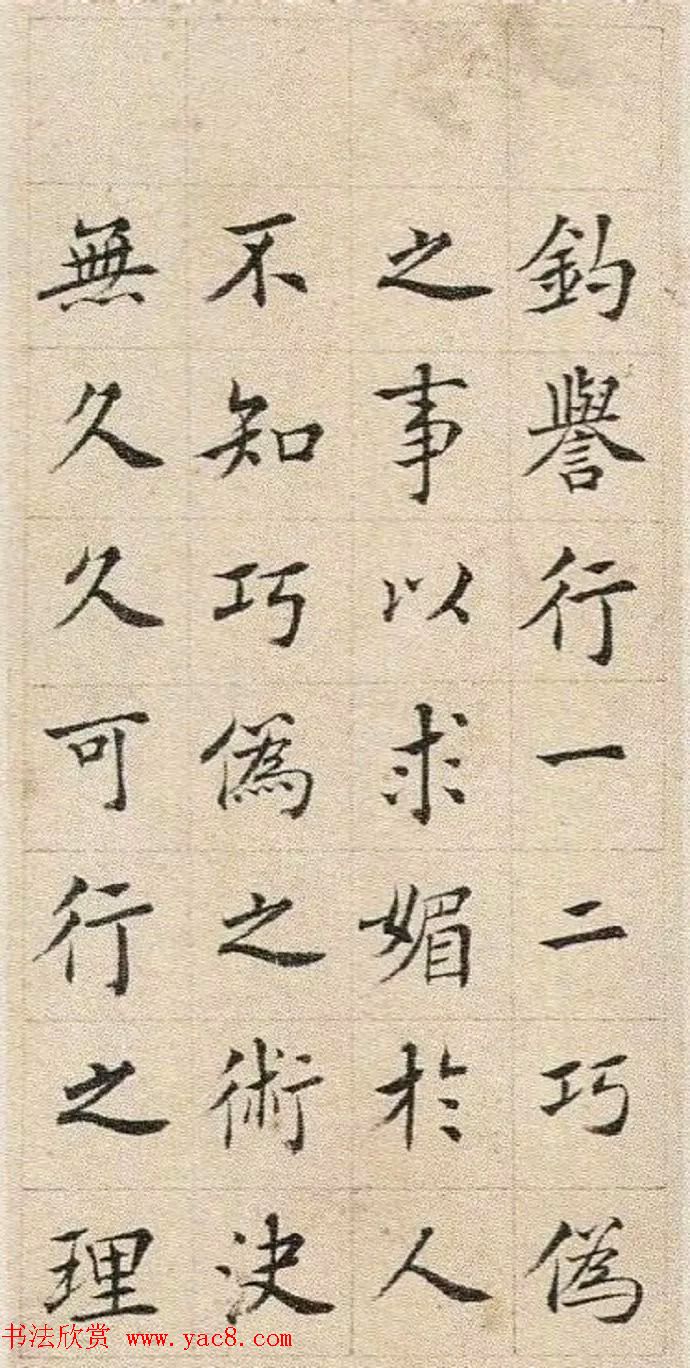 釣譽行一二巧偽
之事以求媚於人
不知巧偽之術決
無久久可行之理
书法欣赏 www.yac8.com